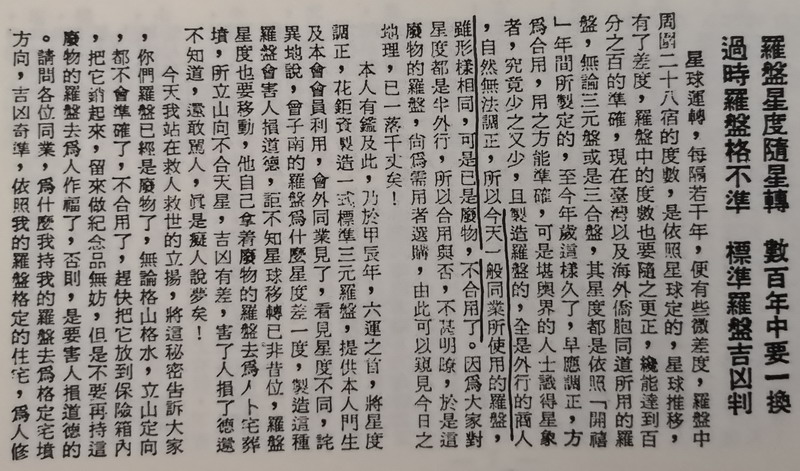 羅盤星度隨星轉　數百年中要一換
過時羅盤格不準　標準羅盤吉凶判
星球運轉，每隔若干年，便有些微差度，羅盤中
周圍二十八宿的度數，是依照星球定的，星球推移，
有了差度，羅盤中的度數也要隨之更正，纔能達到百
分之百的準確，現在臺灣以及海外僑胞同道所用的羅
盤，無論三元盤或是三合盤，其星度都是依照「開禧
」年間所製定的，至今年歲這樣久了，早應調正，方
爲合用，用之方能準確，可是堪輿界的人士識得星象
者，究竟少之又少，且製造羅盤的，全是外行的商人
，自然無法調正，所以今天一般同業所使用的羅盤，
雖形樣相同，可是已是廢物，不合用了。因爲大家對
星度都是半外行，所以合用與否，不甚明瞭，於是這
廢物的羅盤，尙爲需用者選購，由此可以窺見今日之
地理，已一落千丈矣！
本人有鑑及此，乃於甲辰年，六運之首，將星度
調正，花鉅資製造一式標準三元羅盤，提供本人門生
及本會會員利用，會外同業見了，看見星度不同，詫
異地說，曾子南的羅盤爲什麼星度差一度，製造這種
羅盤會害人損道德，詎不知星球移轉已非昔位，羅盤
星度也要移動，他自己拿着廢物的羅盤去爲人卜宅葬
墳，所立山向不合天星，吉凶有差，害了人損了德還
不知道，還敢罵人，眞是癡人說夢矣！
今天我站在救人救世的立場，將這秘密告訴大家
，你們羅盤已經是廢物了，無論格山格水，立山定向
，都不會準確了，不合用了，趕快把它放到保險箱內
，把它銷起來，留來做紀念品無妨，但是不要再持這
廢物的羅盤去爲人作福了，否則，是要害人損道德的
。請問各位同業，爲什麼我持我的羅盤去爲格定宅墳
方向，吉凶奇準，依照我的羅盤格定的住宅，爲人修